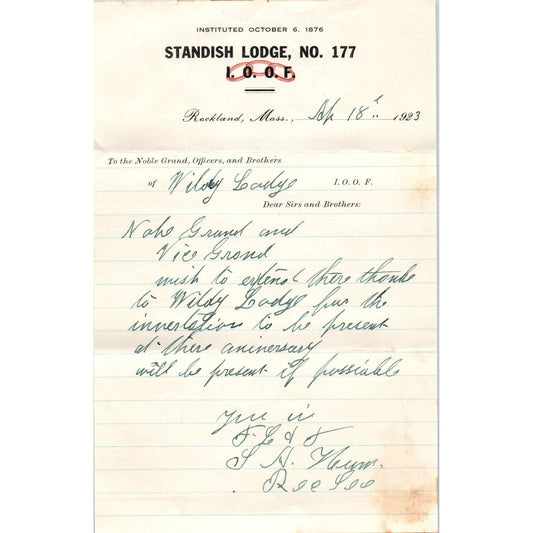 INSTITUTED OCTOBER 6, 1876
STANDISH LODGE, NO. 177
I. O. O. F.
Rockland, Mass., Ap 18th 1923
To the Noble Grand, Officers, and Brothers
of Wildy Lodge I. O. O. F.
Dear Sirs and Brothers:
Nobe Grand and
Vice Grand
wish to extend there thanks
to Wildy Lodge for the
invertation to be present
at there aniversary
will be present if possiable
you in
F L & T
S H.
Rec Sec